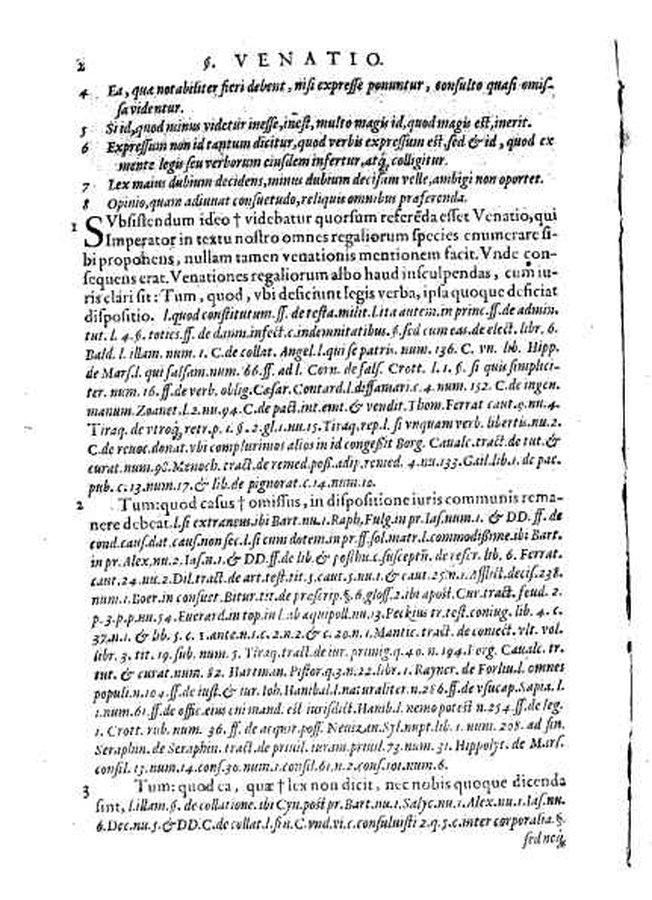 2 §. VENATIO.
4 Ea, quæ notabiliter fieri debent, nisi expresse ponuntur, consulto quasi omis-
sa videntur.
5 Si id, quod minus videtur inesse, inest, multo magis id, quod magis est, inerit.
6 Expressum non id tantum dicitur, quod verbis expressum est, sed & id, quod ex
mente legis seu verborum eiusdem infertur, atq; colligitur.
7 Lex maius dubium decidens, minus dubium decisam velle, ambigi non oportet.
8 Opinio, quam adiuuat consuetudo, reliquis omnibus præferenda.
1 SVbsistendum ideo † videbatur quorsum referēda esset Venatio, qui
Imperator in textu nostro omnes regaliorum species enumerare si-
bi proponens, nullam tamen venationis mentionem facit. Vnde con-
sequens erat. Venationes regaliorum albo haud insculpendas, cum iu-
ris clari sit: Tum, quod, vbi deficiunt legis verba, ipsa quoque deficiat
dispositio. l. quod constitutum. ff. de testa. milit. l. ita autem. in princ. ff. de admin.
tut. l. 4. §. toties. ff. de damn. infect. c. indemnitatibus. §. sed cum eas. de elect. libr. 6.
Bald. l. illam. num. 1. C. de collat. Angel. l. qui se patris. num. 136. C. vn. lib. Hipp.
de Mars. l. qui falsam. num. 66. ff. ad l. Corn. de fals. Crott. l. 1. §. si quis simplici-
ter. num. 16. ff. de verb. oblig. Cæsar. Contard. l. diffamari. c. 4. num. 152. C. de ingen.
manum. Zoanet. l. 2. nu. 94. C. de pact. int. emt. & vendit. Thom. Ferrat caut. 9. nu. 4.
Tiraq. de vtroq; retr. p. 1. §. 2. gl. 1. nu. 15. Tiraq. rep. l. si vnquam verb. libertis. nu. 2.
C. de reuoc. donat. vbi complurimos alios in id congessit Borg. Caualc. tract. de tut. &
curat. num. 98. Menoch. tract. de remed. poss. adip. remed. 4. nu. 133. Gail. lib. 1. de pac.
pub. c. 13. num. 17. & lib. de pignorat. c. 14. num. 10.
2 Tum: quod casus † omissus, in dispositione iuris communis rema-
nere debeat. l. si extraneus. ibi Bart. nu. 1. Raph. Fulg. in pr. Ias. num. 1. & DD. ff. de
cond. caus. dat. caus. non sec. l. si cum dotem. in pr. ff. sol. matr. l. commodissime. ibi Bart.
in pr. Alex. nu. 2. Ias. n. 1. & DD. ff. de lib. & posthu. c. susceptū. de rescr. lib. 6. Ferrat.
caut. 24. nu. 2. Dil. tract. de art. test. tit. 5. caut. 5. nu. 1. & caut. 25. n. 1. Afflict. decis. 238.
num. 1. Boer. in consuet. Bitur. tit. de prescrip. §. 6. gloss. 2. ibi apost. Cur. tract. feud. 2.
p. 3. p. p. nu. 54. Euerard. in top. in l. ab æquipoll. nu. 13. Peckius tr. test. coniug. lib. 4. c.
37. n. 1. & lib. 5. c. 1. ante. n. 1. c. 2. n. 2. & c. 20. n. 1. Mantic. tract. de coniect. vlt. vol.
libr. 3. tit. 19. sub. num. 5. Tiraq. tract. de iur. primig. q. 40. n. 194. Borg. Caualc. tr.
tut. & curat. num. 82. Hartman. Pistor. q. 3. n. 22. libr. 1. Rayner. de Forliu. l. omnes
populi. n. 104. ff. de iust. & iur. Ioh. Hanibal. l. naturaliter. n. 286. ff. de vsucap. Sapia. l.
1. num. 61. ff. de offic. eius cui mand. est iurisdict. Hanib. l. nemo potest n. 254. ff. de leg.
1. Crott. rub. num. 36. ff. de acquir. poss. Neuizan. Syl. nupt. lib. 1. num. 208. ad fin.
Seraphin. de Seraphin. tract. de priuil. iuram. priuil. 73. num. 31. Hippolyt. de Mars.
consil. 13. num. 14. cons. 30. num. 1. consil. 61. n. 2. cons. 101. num. 6.
3 Tum: quod ea, quæ † lex non dicit, nec nobis quoque dicenda
sint, l. illam. §. de collatione. ibi Cyn. post pr. Bart. nu. 1. Salyc. nu. 1. Alex. nu. 1. Ias. nu.
6. Dec. nu. 5. & DD. C. de collat. l. fin. C. vnd. vi. c. consuluisti 2. q. 5. c. inter corporalia. §.
sed neq;